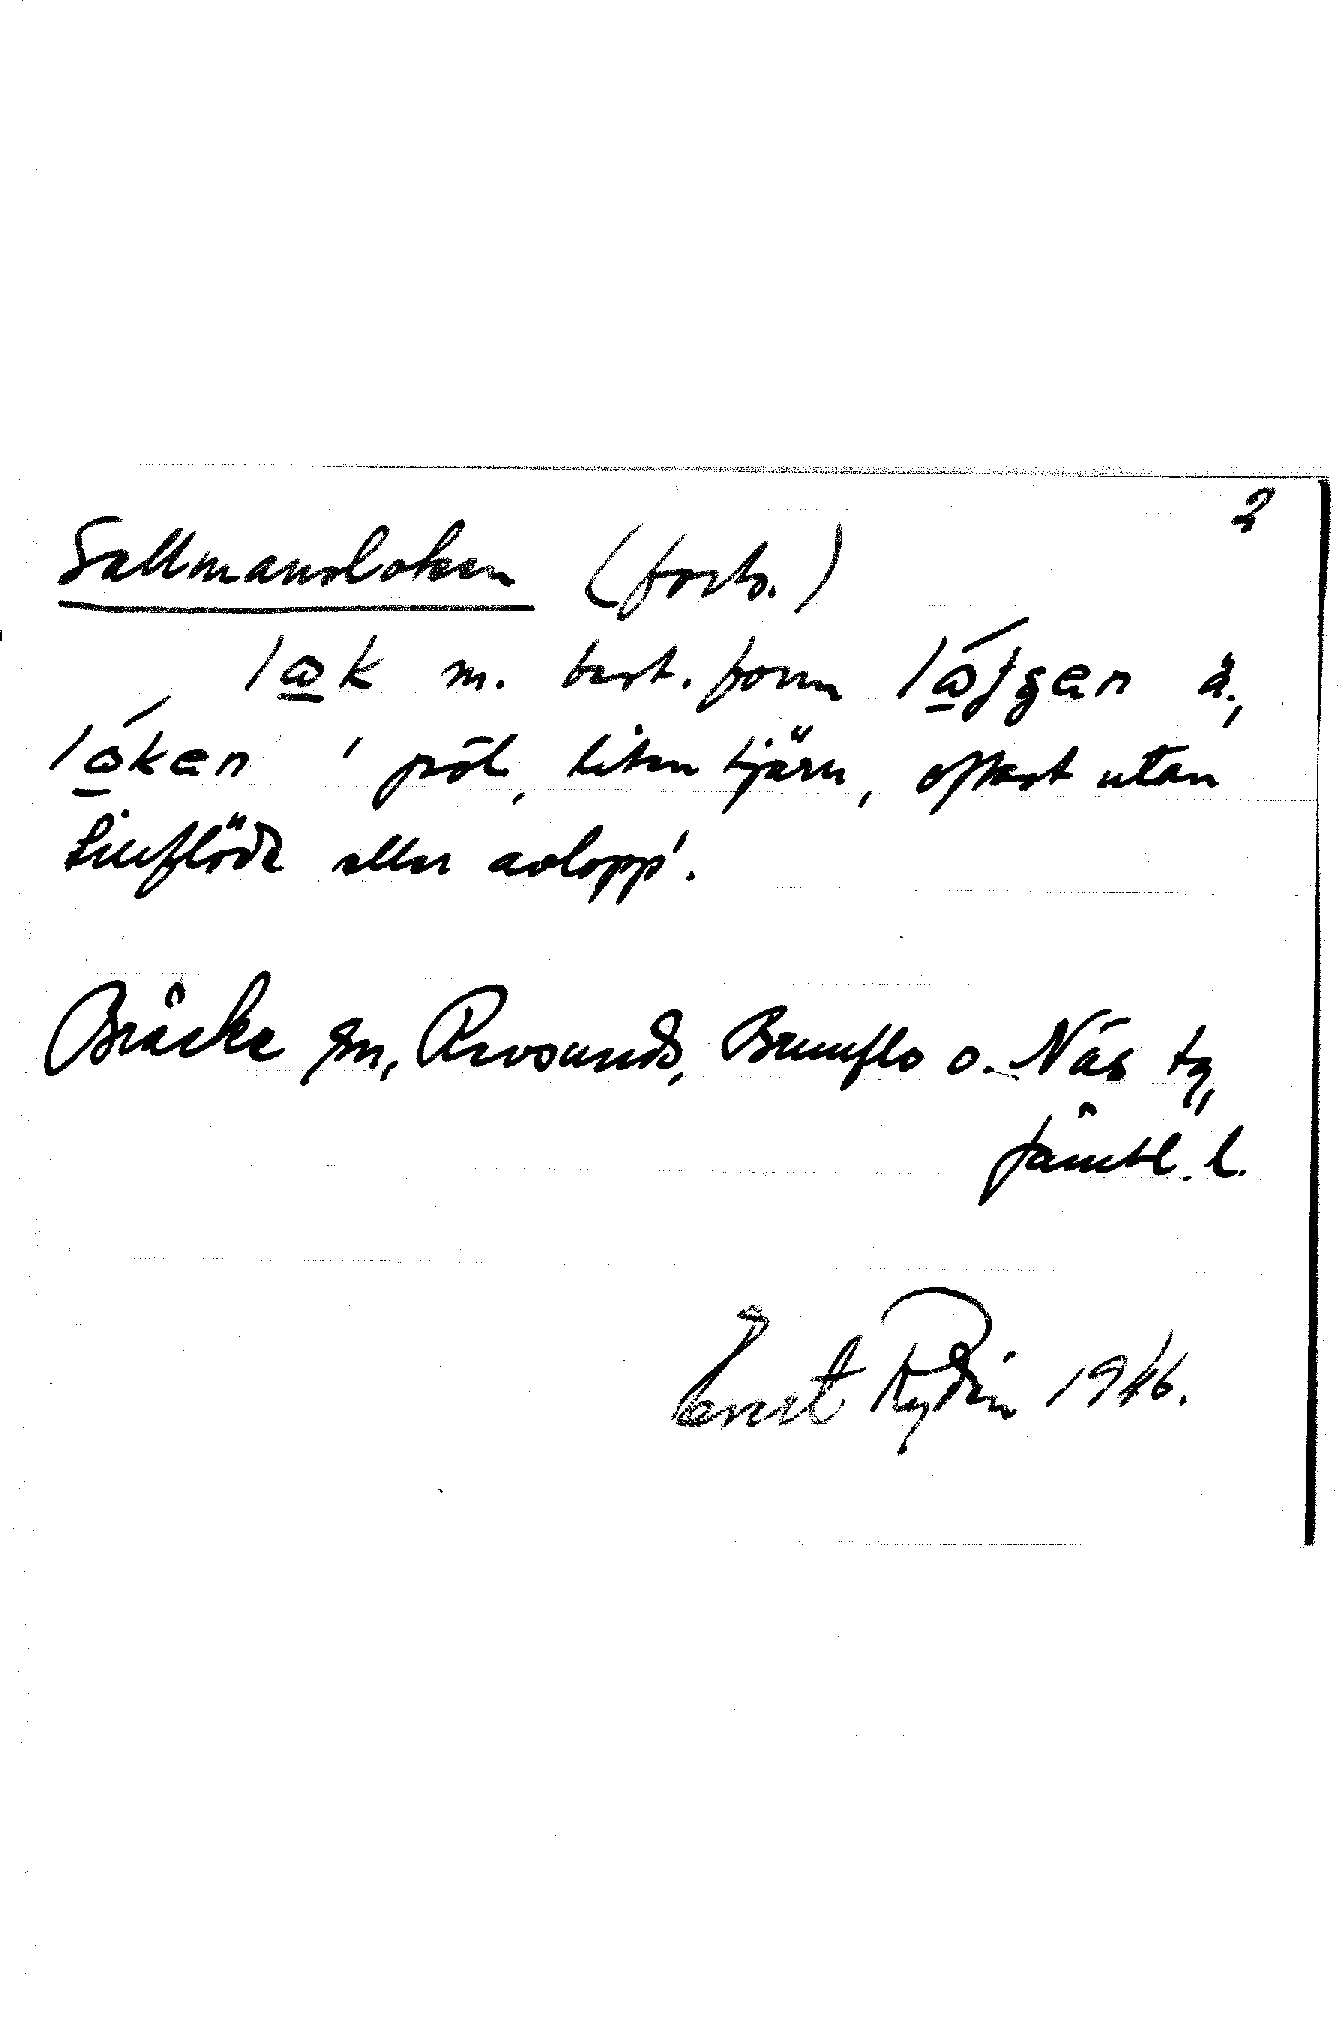 2
Sallmansloken (forts.)
lak m. best. form lájgen ä.,
láken ' pöl, liten tjärn, oftast utan
tillflöde eller avlopp'.
Bräcke sn, Revsunds, Brunflo o. Näs tg,
Jämtl. l.
Ernst Rydin 1946.